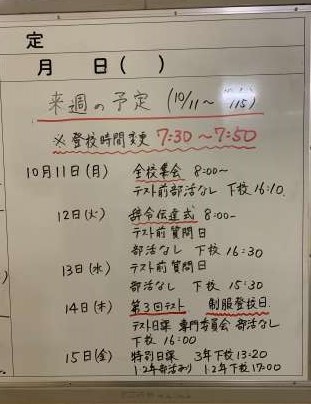 定
月 日( )
来週の予定 (10/11～10/15)
※登校時間変更 7:30～7:50
10月11日(月) 全校集会 8:00～
テスト前部活なし 下校16:10
12日(火) 辞令伝達式 8:00～
テスト前質問日
部活なし 下校 16:30
13日(水) テスト前質問日
部活なし 下校 15:30
14日(木) 第3回テスト 制服登校日
テスト日課 専門委員会 部活なし
下校 16:00
15日(金) 特別日課 3年下校13:20
1・2年部活あり 1・2年下校17:00